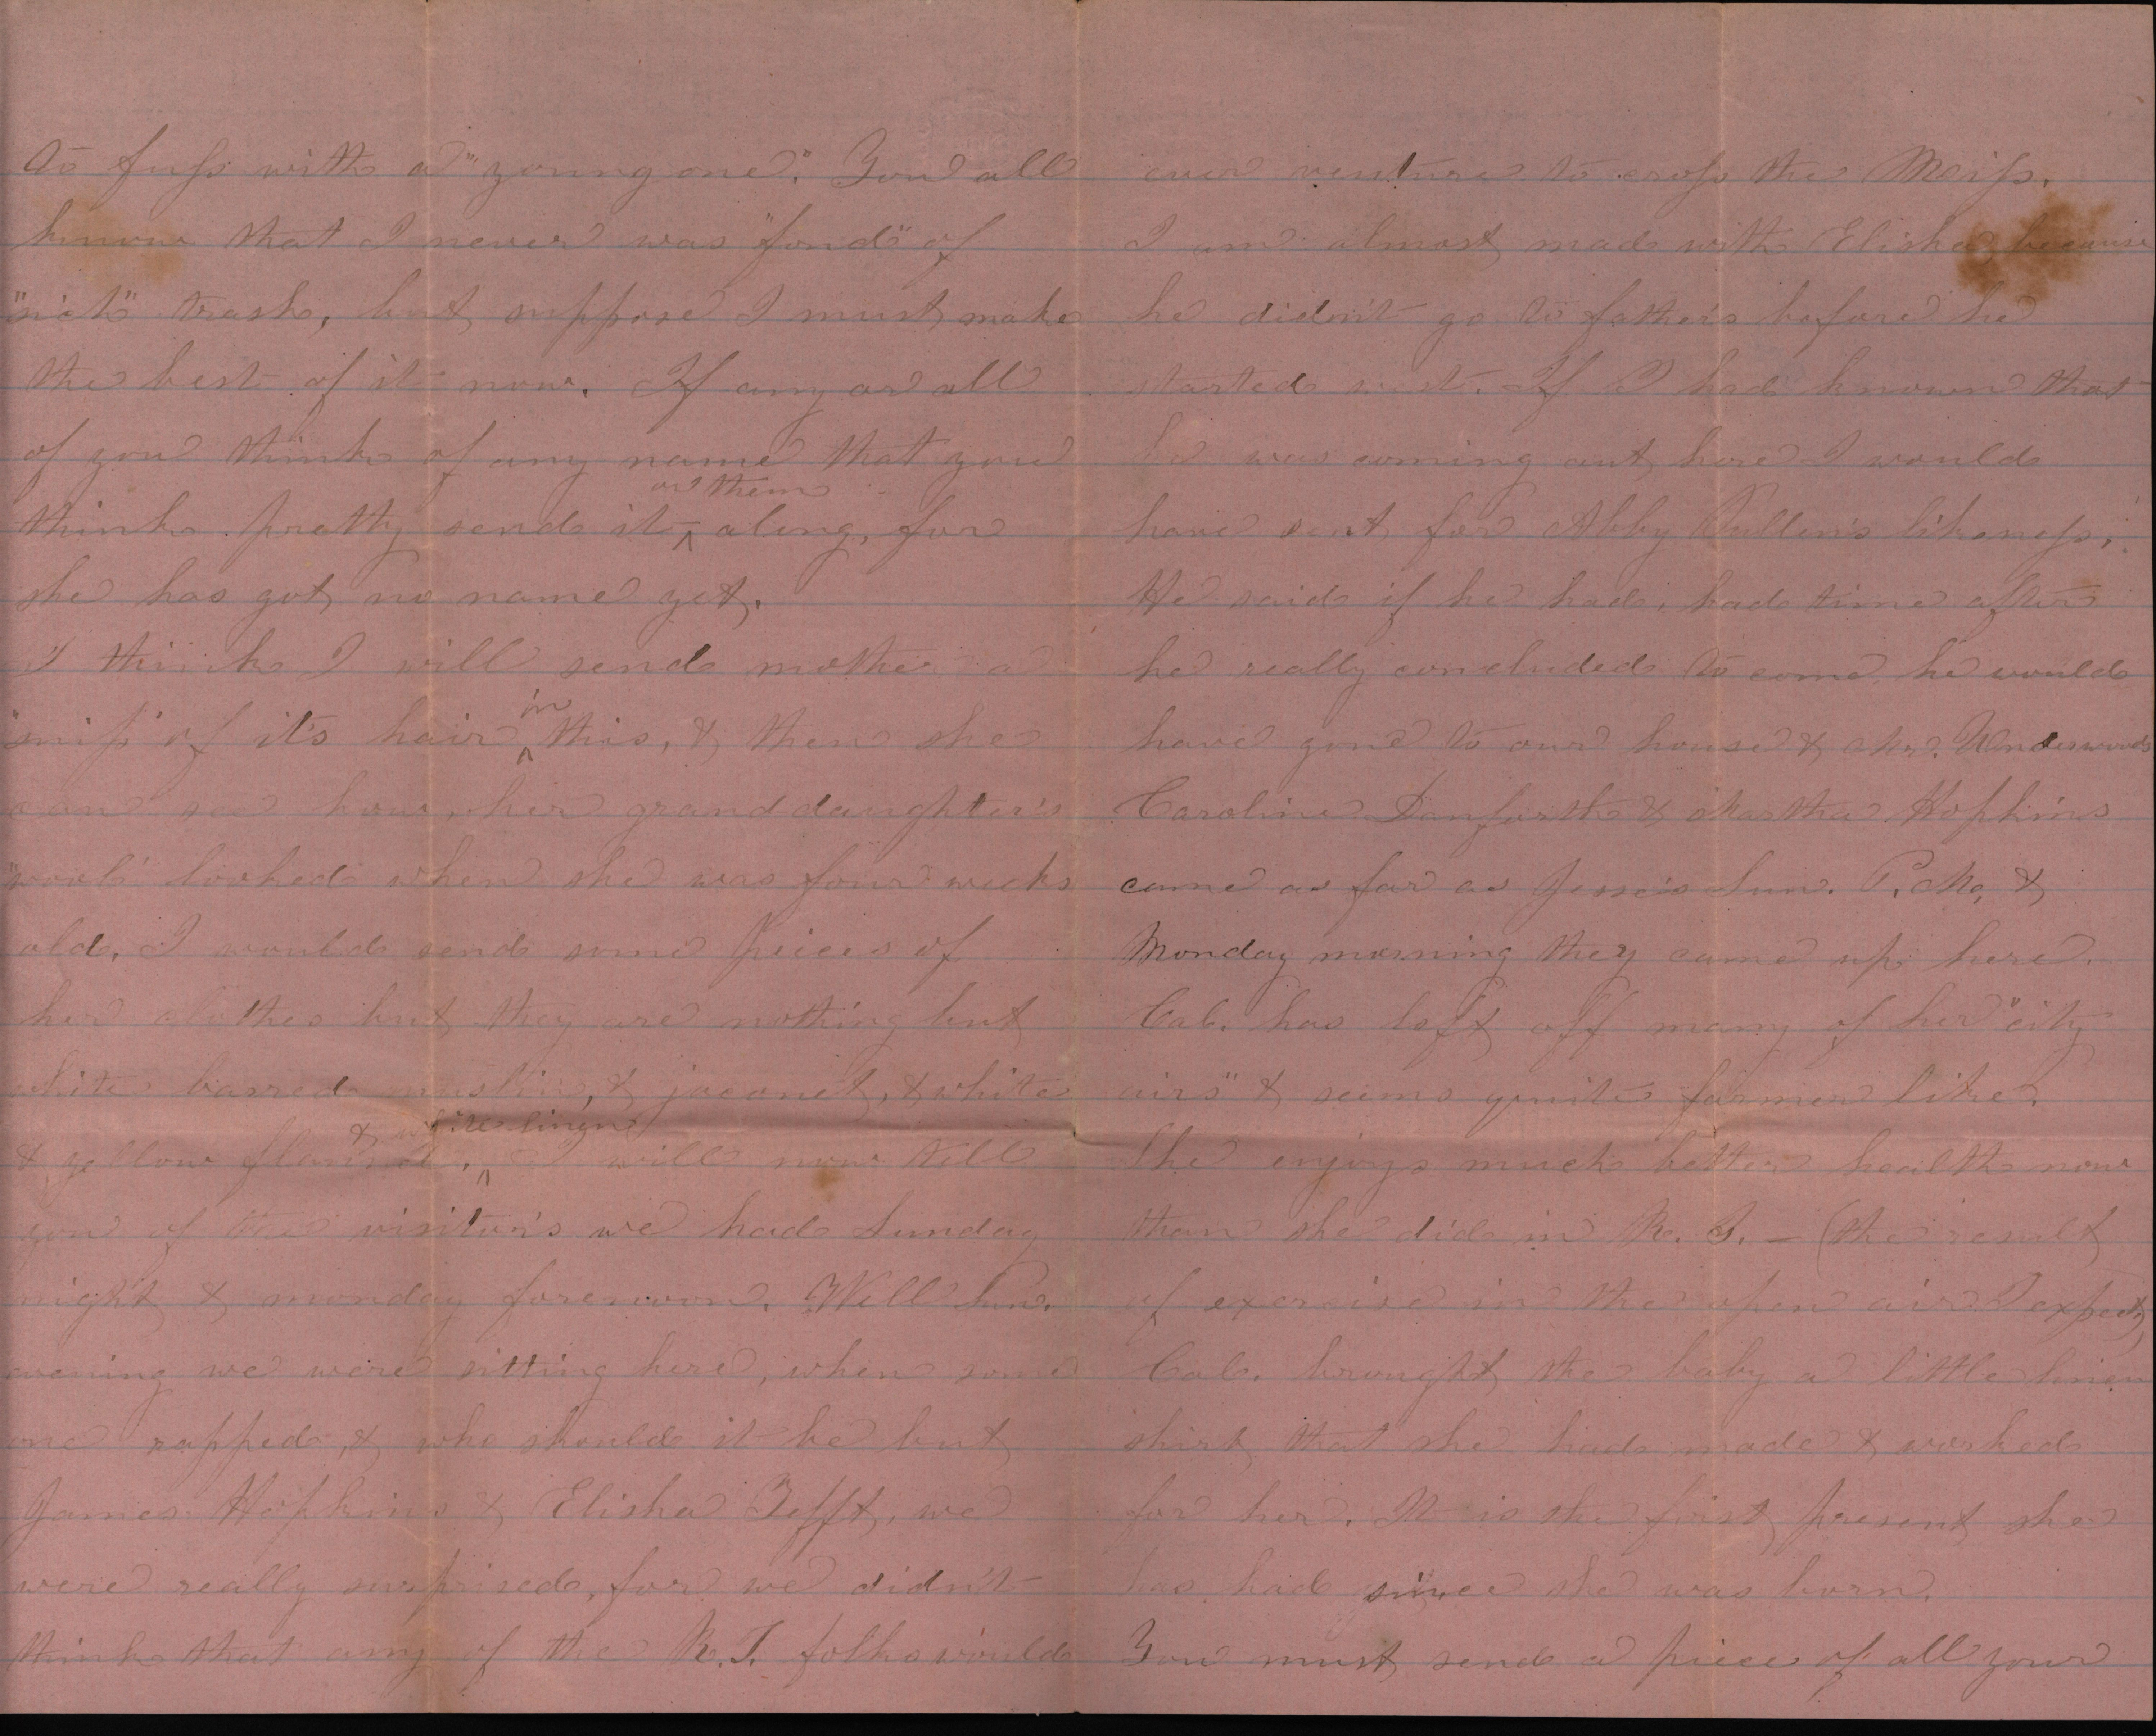 to fuss with a "young one". You all
know that I never was "fond" of
"sich" trash, but suppose I must make
the best of it now. If any or all
of you think of any name that you
think pretty send it ^ or them along, for
she has got no name yet.
I think I will send mother a
"snip" of its hair ^ in this, & then she
can see how, her granddaughter's
"wool" looked when she was four weeks
old. I would send some pieces of
her clothes but they are nothing but
white barred muslin, & jaconet, & white
& yellow flannel, ^ & white linen I will now tell
you of the visitor's we had Sunday
night & monday forenoon. Well Sun.
evening we were sitting here, when some
one rapped, & who should it be but
James Hopkins & Elisha Tefft, we
were really surprised, for we didn't
think that any of the R.I. folks would
ever venture to cross the Miss.
I am almost mad with Elisha because
he didn't go to father's before he
started west. If I had known that
he was coming out here I would
have sent for Abby Pullen's likeness,
He said if he had, had time after
he really concluded to come, he would
have gone to our house & Mr. Underwoods
Caroline Danforth & Martha Hopkins
came as far as Jesse's Sun. P.M., &
Monday morning they came up here.
Cal. has left off many of her "city
airs" & seems quite farmer like.
She enjoys much better health now
than she did in R. I. – (the result
of exercise in the open air I expect)
Cal. brought the baby a little linen
shirt that she had made & worked
for her. It is the first present she
has had since she was born.
You must send a piece of all your